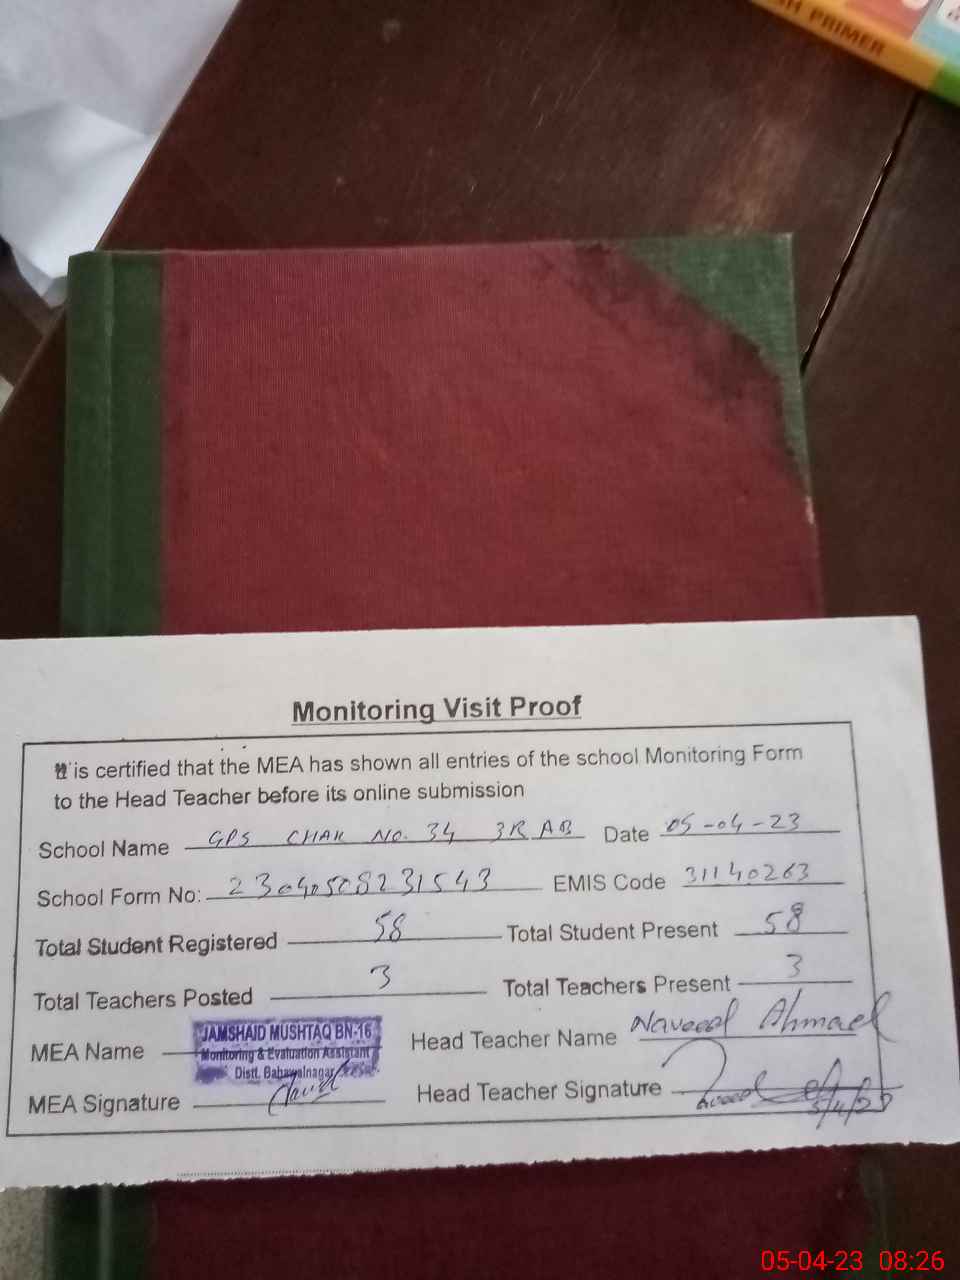 SH PRIMER
Monitoring Visit Proof
It is certified that the MEA has shown all entries of the school Monitoring Form
to the Head Teacher before its online submission
School Name GPS CHAK NO. 34 3R AB Date 05-04-23
School Form No: 23040508231543 EMIS Code 31140263
Total Student Registered 58 Total Student Present 58
Total Teachers Posted 3 Total Teachers Present 3
MEA Name JAMSHAID MUSHTAQ BN-16 Head Teacher Name Naveed Ahmad
Monitoring & Evaluation Assistant
Distt. Bahawalnagar
MEA Signature Head Teacher Signature
5/4/23
05-04-23 08:26